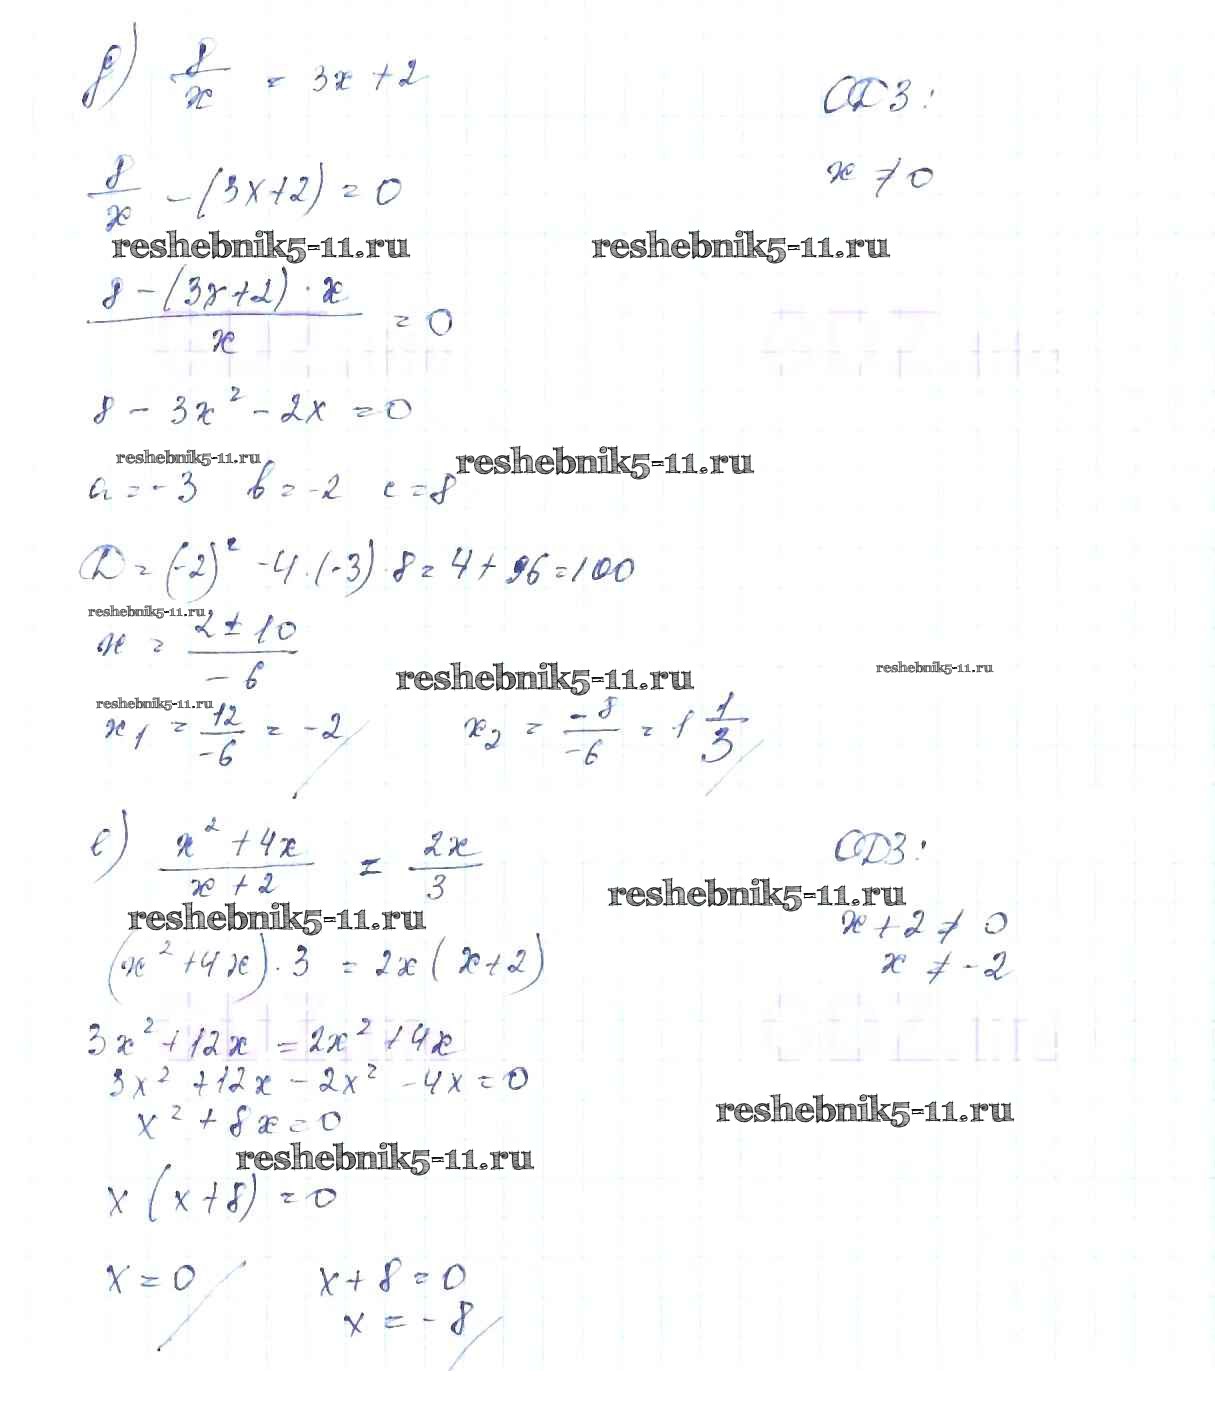 д) 8/x = 3x + 2
ОДЗ:
x ≠ 0
8/x - (3x+2) = 0
reshebnik5-11.ru reshebnik5-11.ru
(8 - (3x+2) · x)/x = 0
8 - 3x² - 2x = 0
reshebnik5-11.ru reshebnik5-11.ru
a = -3 b = -2 c = 8
D = (-2)² - 4·(-3)·8 = 4 + 96 = 100
reshebnik5-11.ru
x = (2 ± 10)/-6
reshebnik5-11.ru reshebnik5-11.ru
reshebnik5-11.ru
x₁ = 12/-6 = -2 x₂ = -8/-6 = 1 1/3
е) (x² + 4x)/(x + 2) = 2x/3
ОДЗ:
reshebnik5-11.ru
reshebnik5-11.ru
x + 2 ≠ 0
x ≠ -2
(x² + 4x)·3 = 2x(x+2)
3x² + 12x = 2x² + 4x
3x² + 12x - 2x² - 4x = 0
reshebnik5-11.ru
x² + 8x = 0
reshebnik5-11.ru
x(x+8) = 0
x = 0 x + 8 = 0
x = -8